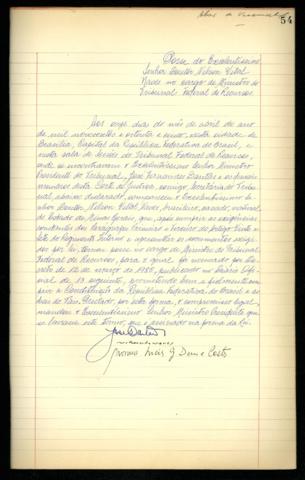 54
Posse do Excelentíssimo
Senhor Doutor Nelson Vital
Naves no cargo de Ministro do
Tribunal Federal de Recursos.
Aos onze dias do mês de abril do ano
de mil novecentos e oitenta e cinco, nesta cidade de
Brasília, Capital da República Federativa do Brasil, e
nesta sala de Sessões do Tribunal Federal de Recursos,
onde se encontravam o Excelentíssimo Senhor Ministro
Presidente do Tribunal, José Fernandes Dantas e os demais
membros desta Corte de Justiça, comigo Secretário do Tribu
nal, abaixo declarado, compareceu o Excelentíssimo Se-
nhor Doutor Nelson Vital Naves, brasileiro, casado, natural
do Estado de Minas Gerais, que, após cumprir as exigências
constantes dos Parágrafos Primeiro e Terceiro do Artigo Vinte e
Sete do Regimento Interno e apresentar os documentos exigi-
dos por lei, tomou posse no cargo de Ministro do Tribunal
Federal de Recursos, para o qual foi nomeado por De-
creto de 12 de março de 1985, publicado no Diário Ofi-
cial de 13 seguinte, prometendo bem e fielmente cum-
prir a Constituição da República Federativa do Brasil e as
leis do País. Prestado, por esta forma, o compromisso legal,
mandou o Excelentíssimo Senhor Ministro Presidente que
se lavrasse este termo, que é assinado na forma da Lei.